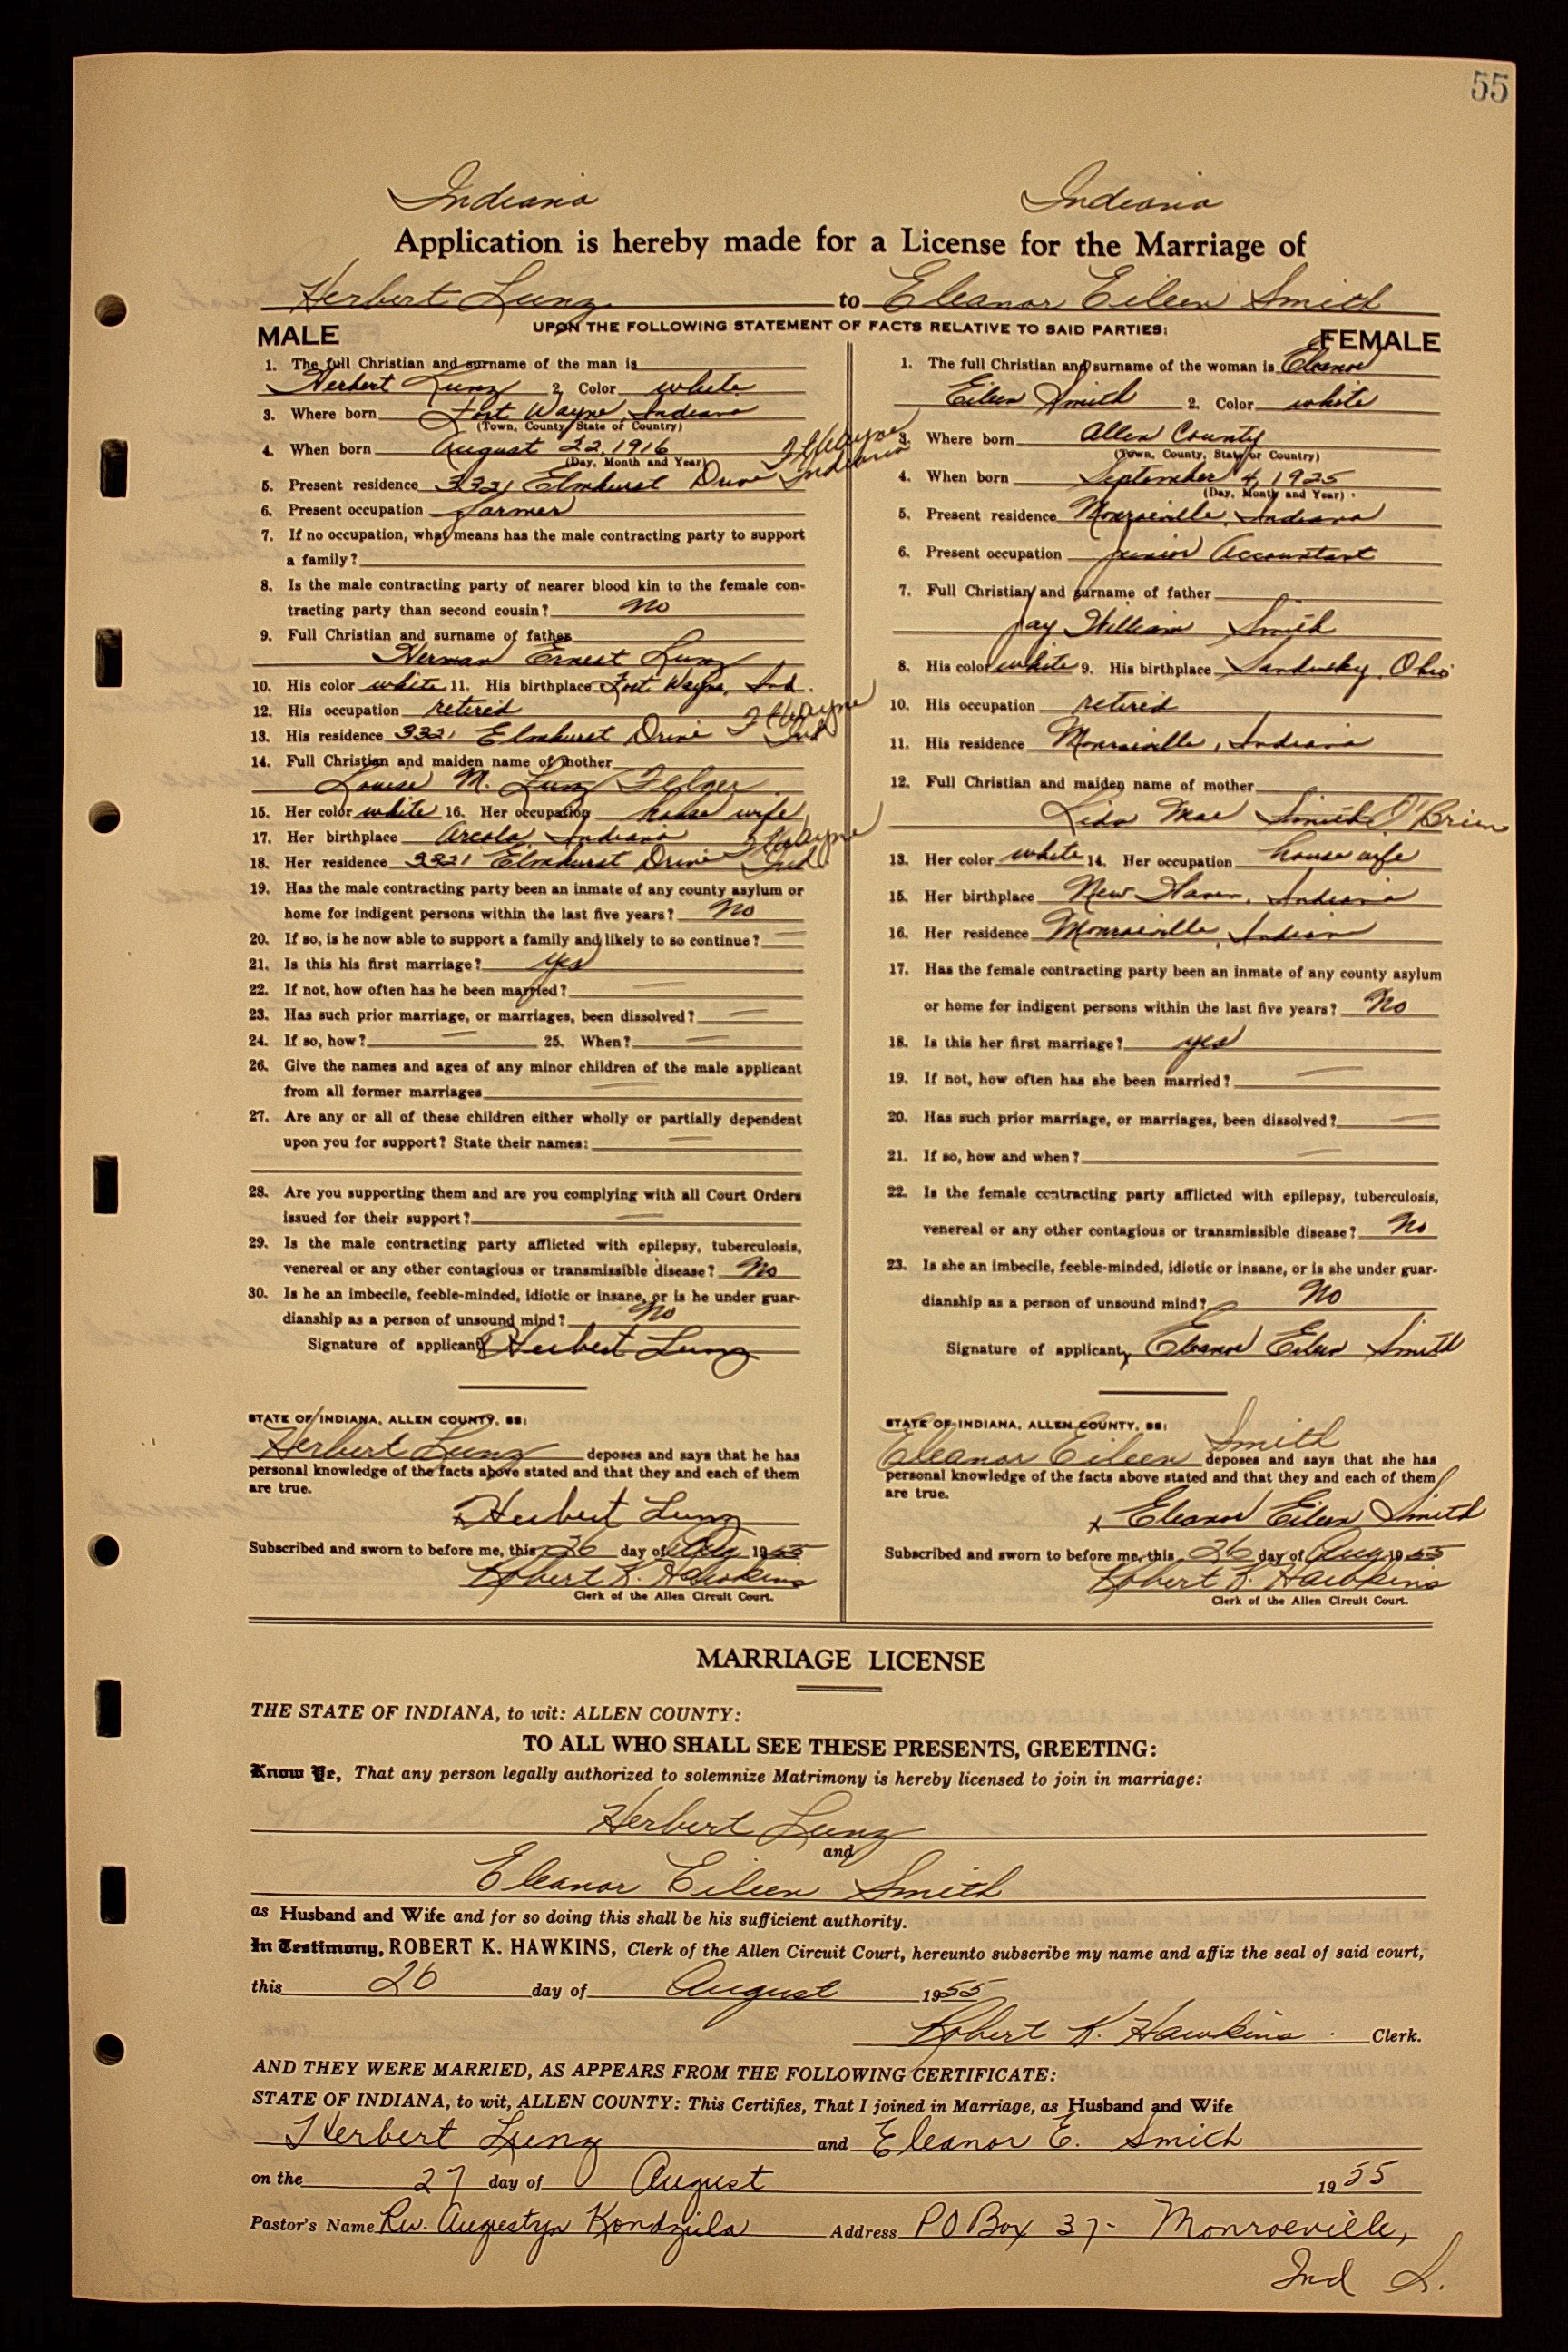 55
Indiana Indiana
Application is hereby made for a License for the Marriage of
Herbert Lunz to Eleanor Eileen Smith
UPON THE FOLLOWING STATEMENT OF FACTS RELATIVE TO SAID PARTIES:
MALE
1. The full Christian and surname of the man is
Herbert Lunz 2. Color white
3. Where born Fort Wayne, Indiana
(Town, County, State or Country)
4. When born August 22, 1916
(Day, Month and Year)
Ft Wayne
5. Present residence 3321 Elmhurst Drive Indiana
6. Present occupation farmer
7. If no occupation, what means has the male contracting party to support
a family?
8. Is the male contracting party of nearer blood kin to the female con-
tracting party than second cousin? No
9. Full Christian and surname of father
Herman Ernest Lunz
10. His color white 11. His birthplace Fort Wayne, Ind.
12. His occupation retired
13. His residence 3321 Elmhurst Drive Ft Wayne Ind
14. Full Christian and maiden name of mother
Louise M. Lunz Felger
15. Her color white 16. Her occupation house wife
17. Her birthplace Arcola, Indiana
18. Her residence 3321 Elmhurst Drive Ft Wayne Ind.
19. Has the male contracting party been an inmate of any county asylum or
home for indigent persons within the last five years? No
20. If so, is he now able to support a family and likely to so continue? —
21. Is this his first marriage? yes
22. If not, how often has he been married? —
23. Has such prior marriage, or marriages, been dissolved? —
24. If so, how? — 25. When? —
26. Give the names and ages of any minor children of the male applicant
from all former marriages —
27. Are any or all of these children either wholly or partially dependent
upon you for support? State their names: —
28. Are you supporting them and are you complying with all Court Orders
issued for their support? —
29. Is the male contracting party afflicted with epilepsy, tuberculosis,
venereal or any other contagious or transmissible disease? No
30. Is he an imbecile, feeble-minded, idiotic or insane, or is he under guar-
dianship as a person of unsound mind? No
Signature of applicant Herbert Lunz
STATE OF INDIANA, ALLEN COUNTY, SS:
Herbert Lunz deposes and says that he has
personal knowledge of the facts above stated and that they and each of them
are true.
x Herbert Lunz
Subscribed and sworn to before me, this 26 day of Aug 1955
Robert K. Hawkins
Clerk of the Allen Circuit Court.
FEMALE
1. The full Christian and surname of the woman is Eleanor
Eileen Smith 2. Color white
3. Where born Allen County
(Town, County, State or Country)
4. When born September 4, 1925
(Day, Month and Year)
5. Present residence Monroeville, Indiana
6. Present occupation Junior Accountant
7. Full Christian and surname of father
Jay William Smith
8. His color white 9. His birthplace Sandusky, Ohio
10. His occupation retired
11. His residence Monroeville, Indiana
12. Full Christian and maiden name of mother
Lida Mae Smith O'Brien
13. Her color white 14. Her occupation house wife
15. Her birthplace New Haven, Indiana
16. Her residence Monroeville, Indiana
17. Has the female contracting party been an inmate of any county asylum
or home for indigent persons within the last five years? No
18. Is this her first marriage? yes
19. If not, how often has she been married? —
20. Has such prior marriage, or marriages, been dissolved? —
21. If so, how and when? —
22. Is the female contracting party afflicted with epilepsy, tuberculosis,
venereal or any other contagious or transmissible disease? No
23. Is she an imbecile, feeble-minded, idiotic or insane, or is she under guar-
dianship as a person of unsound mind? No
Signature of applicant, Eleanor Eileen Smith
STATE OF INDIANA, ALLEN COUNTY, SS:
Eleanor Eileen Smith deposes and says that she has
personal knowledge of the facts above stated and that they and each of them
are true.
x Eleanor Eileen Smith
Subscribed and sworn to before me, this 26 day of Aug 1955
Robert K. Hawkins
Clerk of the Allen Circuit Court.
MARRIAGE LICENSE
THE STATE OF INDIANA, to wit: ALLEN COUNTY:
TO ALL WHO SHALL SEE THESE PRESENTS, GREETING:
Know Ye, That any person legally authorized to solemnize Matrimony is hereby licensed to join in marriage:
Herbert Lunz
and
Eleanor Eileen Smith
as Husband and Wife and for so doing this shall be his sufficient authority.
In Testimony, ROBERT K. HAWKINS, Clerk of the Allen Circuit Court, hereunto subscribe my name and affix the seal of said court,
this 26 day of August 1955
Robert K. Hawkins Clerk.
AND THEY WERE MARRIED, AS APPEARS FROM THE FOLLOWING CERTIFICATE:
STATE OF INDIANA, to wit, ALLEN COUNTY: This Certifies, That I joined in Marriage, as Husband and Wife
Herbert Lunz and Eleanor E. Smith
on the 27 day of August 1955
Pastor's Name Rev. Augustyn Kondziela Address P O Box 37- Monroeville,
Ind S.